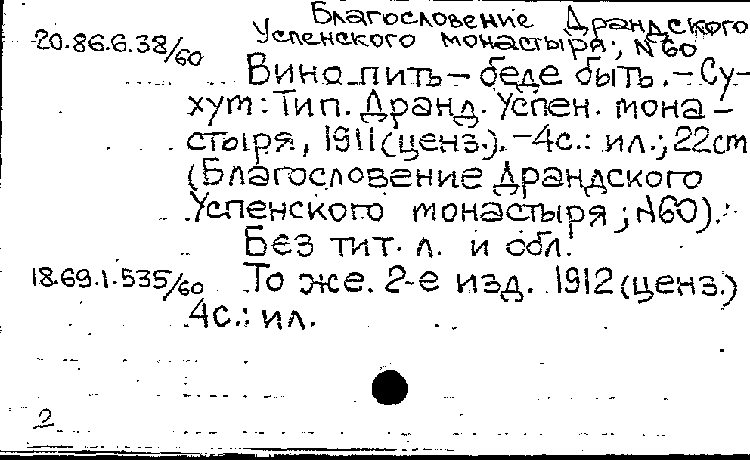 Благословение Драндского
20.86.6.38/60 Успенского монастыря; №60
Вино пить – беде быть. – Су-
хум: Тип. Дранд. Успен. мона-
стыря, 1911 (ценз.). – 4с.: ил.; 22cm
(Благословение Драндского
Успенского монастыря; №60).
Без тит. л. и обл.
18.69.1.535/60 То же. 2-е изд. 1912 (ценз.)
4с.: ил.
2